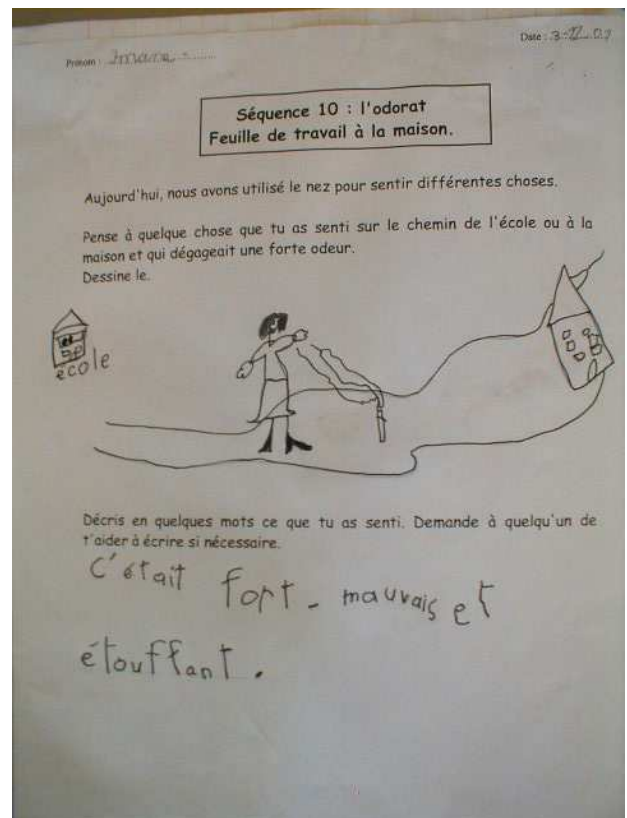 Prénom : Imane
Date : 3-12-07
Séquence 10 : l'odorat
Feuille de travail à la maison.
Aujourd'hui, nous avons utilisé le nez pour sentir différentes choses.
Pense à quelque chose que tu as senti sur le chemin de l'école ou à la
maison et qui dégageait une forte odeur.
Dessine le.
école
Décris en quelques mots ce que tu as senti. Demande à quelqu'un de
t'aider à écrire si nécessaire.
C'était fort - mauvais et
étouffant.